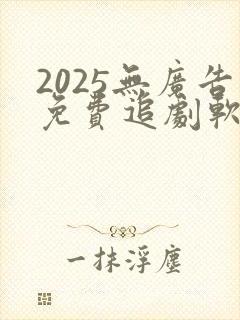 2025無廣告
免費追劇軟
一抹浮塵